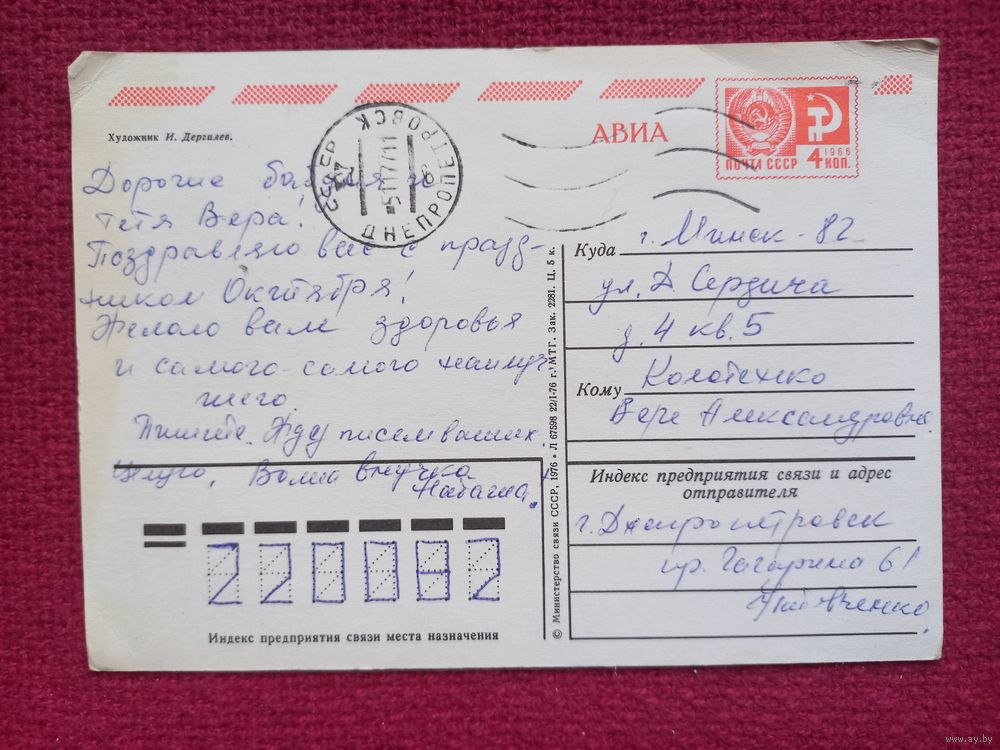 Художник И. Дергилев.
АВИА
ПОЧТА СССР 4 КОП.
1966
ДНЕПРОПЕТРОВСК
Дорогие
тётя Вера!
Поздравляю вас с празд-
ником Октября!
Желаю вам здоровья
и самого-самого наилуч
шего.
Пишите. Жду писем ваших.
внучка
Наташа.
220082
Индекс предприятия связи места назначения
© Министерство связи СССР, 1976 • Л 67598 22/I-76 г. МТГ. Зак. 2281. Ц. 5 к.
Куда г. Минск-82
ул. Д. Сердича
д. 4 кв. 5
Кому
Вере Александровне
Индекс предприятия связи и адрес
отправителя
г. Днепропетровск
пр. Гагарина 61
© www.ay.by